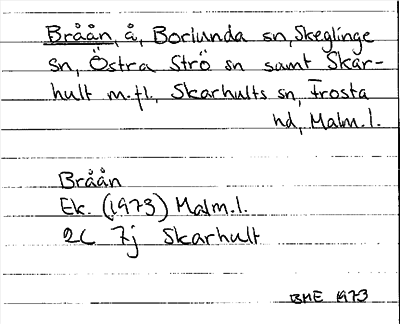 Bråån, å, Borlunda sn, Skeglinge
sn, Östra Strö sn samt Skar-
hult m.fl., Skarhults sn, Frosta
hd, Malm.l.
Bråån
Ek. (1973) Malm.l.
2C 7j Skarhult
BME 1973